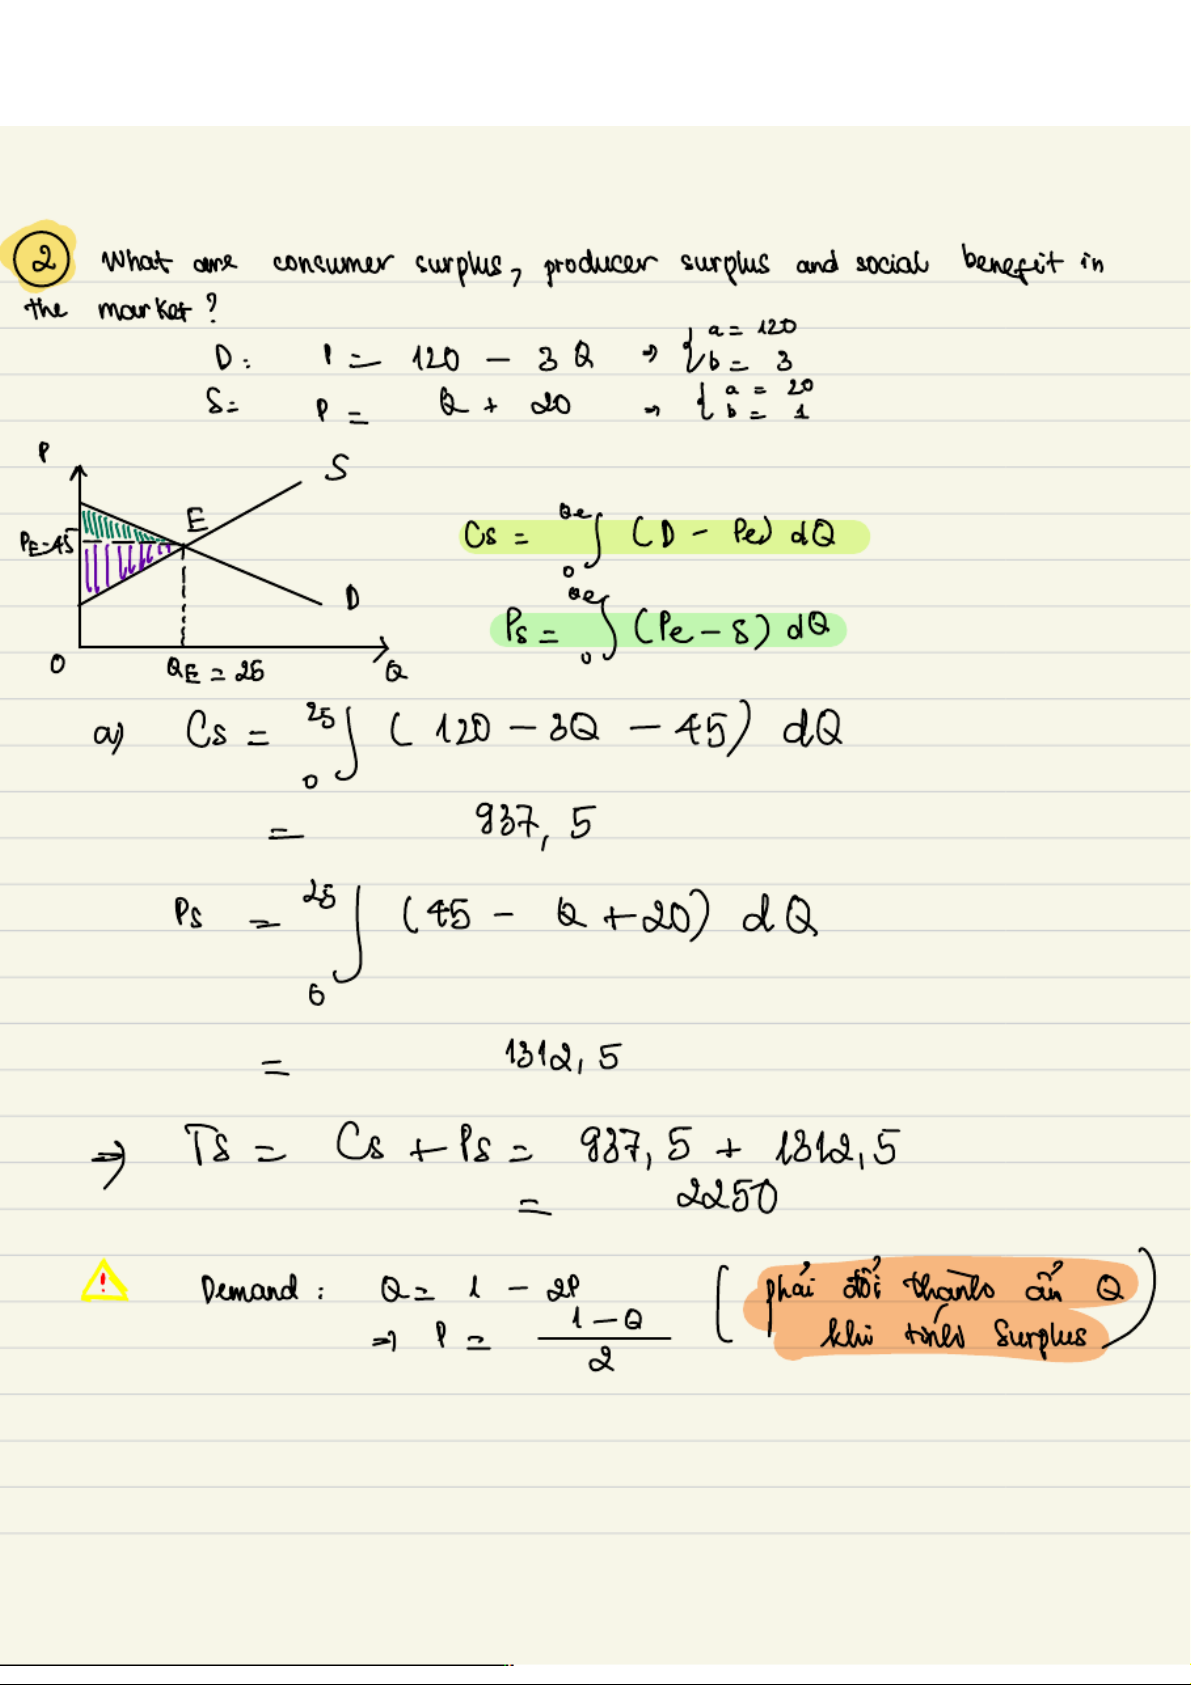 2 What are consumer surplus, producer surplus and social benefit in
the market?
D: P = 120 - 3Q → { a = 120
b = 3
S= P = Q + 20 → { a = 20
b = 1
P
S
E
PE=45
D
O
QE = 25
Q
Cs = 0∫Qe (D - Pe) dQ
Ps = 0∫Qe (Pe - S) dQ
a) Cs = 0∫25 (120 - 3Q - 45) dQ
= 937,5
Ps = 0∫25 (45 - Q + 20) dQ
= 1312,5
⇒ TS = Cs + Ps = 937,5 + 1312,5
= 2250
! Demand: Q = 1 - 2P (phải đổi thành ẩn Q
⇒ P = (1 - Q)/2 khi tính Surplus)